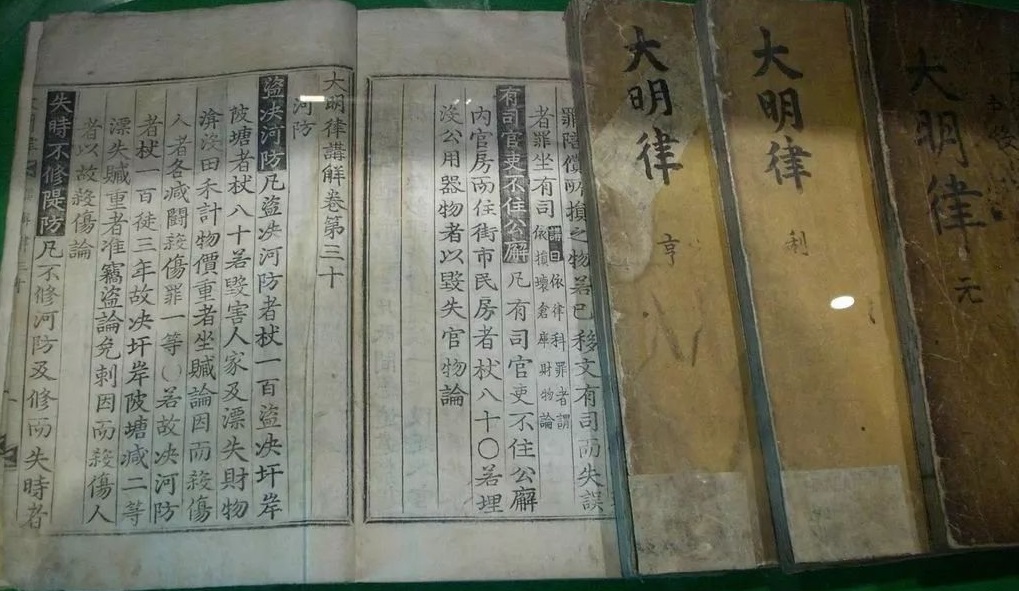 大明律 元
大明律 利
大明律 亨
罪陪償所損之物若已移文有司而失誤
者罪坐有司
講曰依律科罪者謂
依損壞倉庫財物論
有司官吏不住公廨凡有司官吏不住公廨
內官房而住街市民房者杖八十○若埋
沒公用器物者以毀失官物論
大明律講解卷第三十
河防
盜决河防凡盜决河防者杖一百盜决圩岸
陂塘者杖八十若毀害人家及漂失財物
渰沒田禾計物價重者坐贓論因而殺傷
人者各減鬪殺傷罪一等○若故决河防
者杖一百徒三年故决圩岸陂塘減二等
漂失贓重者准竊盜論免刺因而殺傷人
者以故殺傷論
失時不修隄防凡不修河防及修而失時者